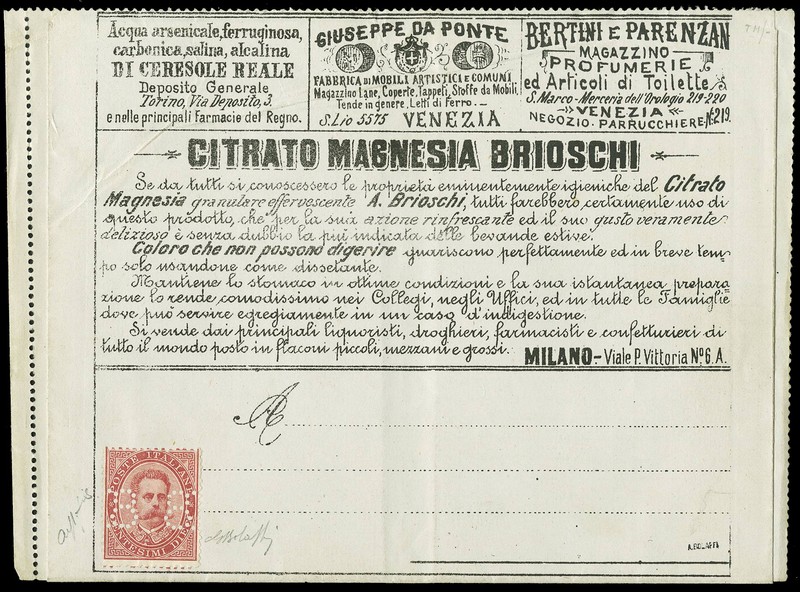 Acqua arsenicale, ferruginosa,
carbonica, salina, alcalina
DI CERESOLE REALE
Deposito Generale
Torino, Via Deposito, 3.
e nelle principali farmacie del Regno.
GIUSEPPE DA PONTE
FABBRICA DI MOBILI ARTISTICI E COMUNI
Magazzino Lane, Coperte, Tappeti, Stoffe da Mobili,
Tende in genere, Letti di Ferro. —
S. Lio 5575 VENEZIA
BERTINI E PARENZAN
MAGAZZINO
PROFUMERIE
ed Articoli di Toilette
S. Marco - Merceria dell'Orologio 219-220
VENEZIA
NEGOZIO - PARRUCCHIERE, N° 219.
CITRATO MAGNESIA BRIOSCHI
Se da tutti si conoscessero le proprietà eminentemente igieniche del Citrato
Magnesia granulare effervescente A. Brioschi, tutti farebbero certamente uso di
questo prodotto, chè per la sua azione rinfrescante ed il suo gusto veramente
delizioso è senza dubbio la più indicata delle bevande estive.
Coloro che non possono digerire guariscono perfettamente ed in breve tem-
po solo usandone come dissetante.
Mantiene lo stomaco in ottime condizioni e la sua istantanea prepara-
zione lo rende comodissimo nei Collegi, negli Uffici, ed in tutte le Famiglie
dove può servire egregiamente in un caso d'indigestione.
Si vende dai principali liquoristi, droghieri, farmacisti e confetturieri di
tutto il mondo posto in flaconi piccoli, mezzani e grossi. MILANO. - Viale P. Vittoria N° 6. A.
A
POSTE ITALIANE
CENTESIMI DIECI
A. BOLAFFI